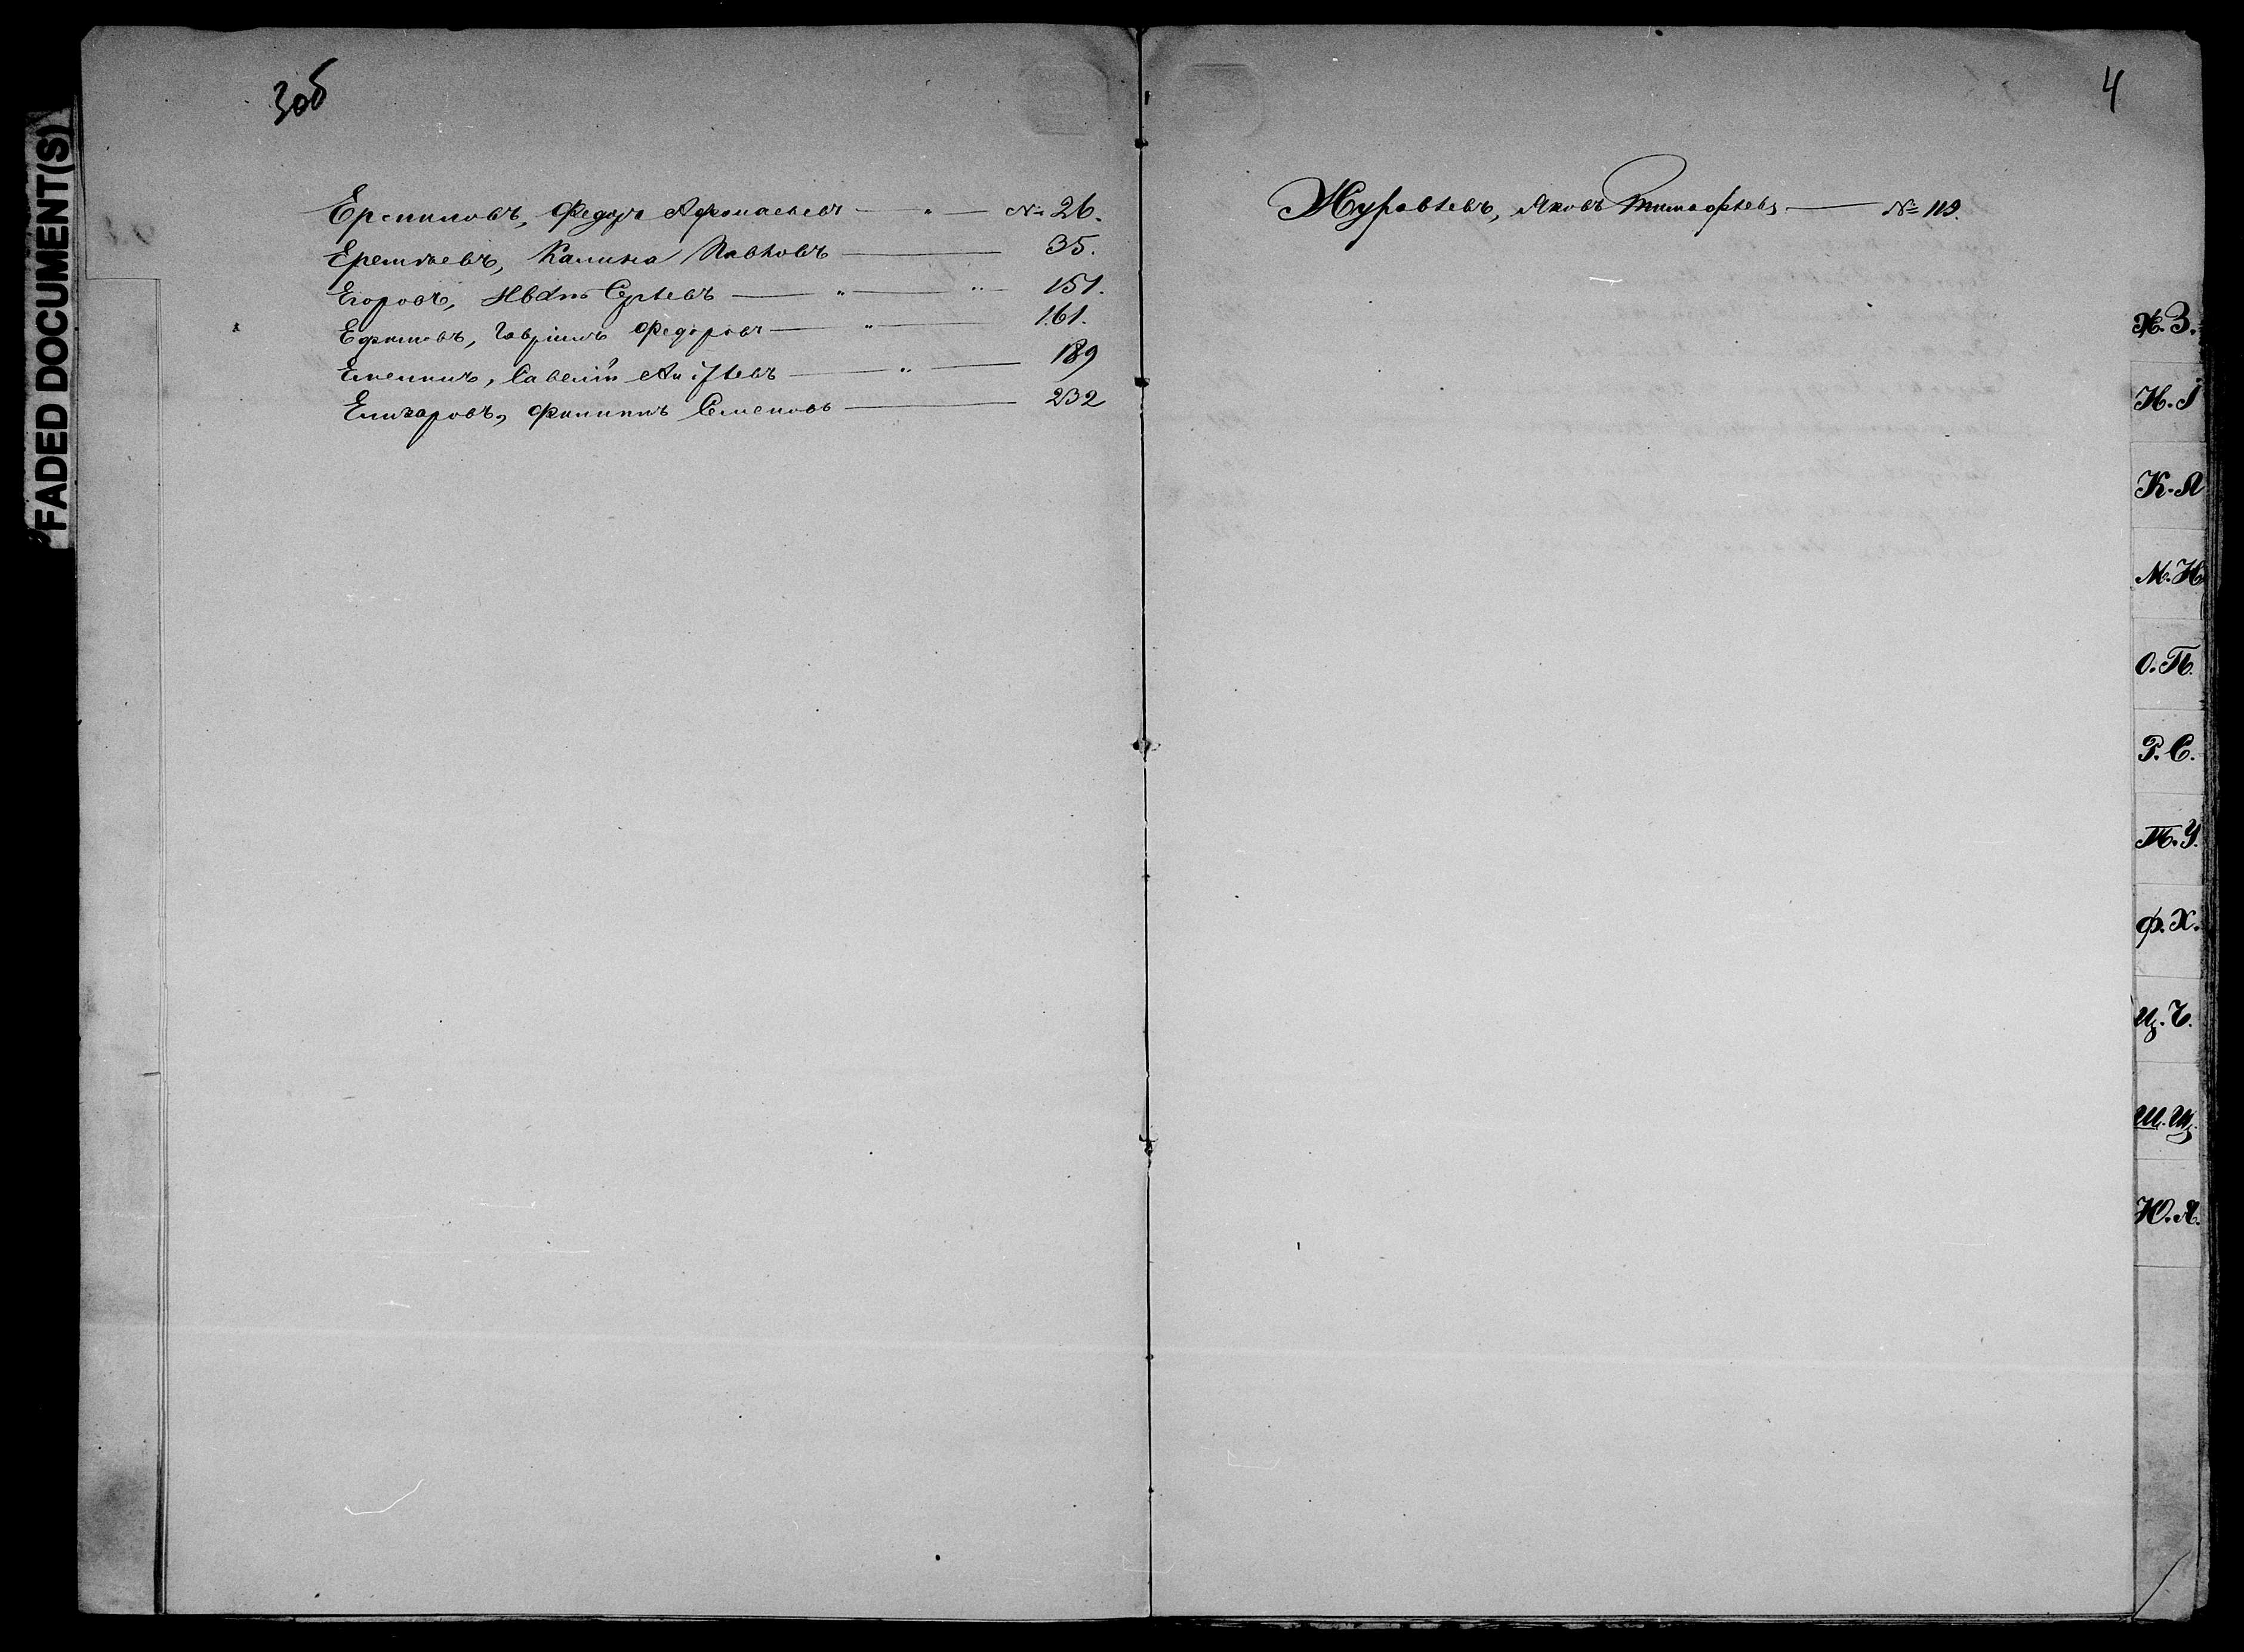 FADED DOCUMENT(S)
3об
Ермиловъ, Федоръ Афонасьевъ — " — № 26.
Еремѣевъ, Калина Павловъ — 35.
Егоровъ, Иванъ Сергѣевъ — " — " — 151.
Ефимовъ, Гавріилъ Федоровъ — " — 161.
Емелинъ, Савелій — " — 189
Елизаровъ, Филиппъ Семеновъ — 232
4
Журавлевъ, Яковъ Тимофѣевъ — № 119.
Ж.З.
И.І
К.Л
М.Н.
О.П.
Р.С.
Т.У.
Ф.Х.
Ц.Ч.
Ш.Щ.
Ю.Я.